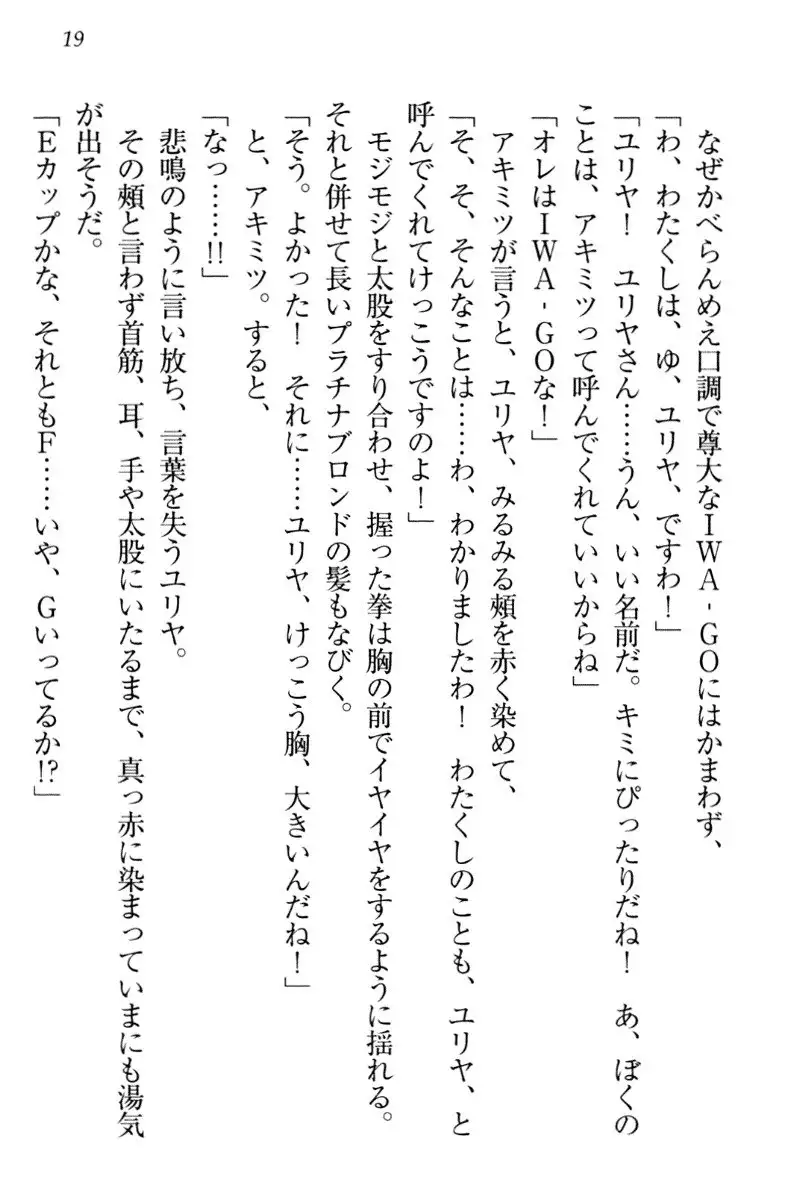 19
なぜかべらんめえ口調で尊大なIWA-GOにはかまわず、
「わ、わたくしは、ゆ、ユリヤ、ですわ！」
「ユリヤ！　ユリヤさん……うん、いい名前だ。キミにぴったりだね！　あ、ぼくの
ことは、アキミツって呼んでくれていいからね」
「オレはIWA-GOな！」
アキミツが言うと、ユリヤ、みるみる頰を赤く染めて、
「そ、そ、そんなことは……わ、わかりましたわ！　わたくしのことも、ユリヤ、と
呼んでくれてけっこうですのよ！」
モジモジと太股をすり合わせ、握った拳は胸の前でイヤイヤをするように揺れる。
それと併せて長いプラチナブロンドの髪もなびく。
「そう。よかった！　それに……ユリヤ、けっこう胸、大きいんだね！」
と、アキミツ。すると、
「なっ……!!」
悲鳴のように言い放ち、言葉を失うユリヤ。
その頰と言わず首筋、耳、手や太股にいたるまで、真っ赤に染まっていまにも湯気
が出そうだ。
「Eカップかな、それともF……いや、Gいってるか!?」